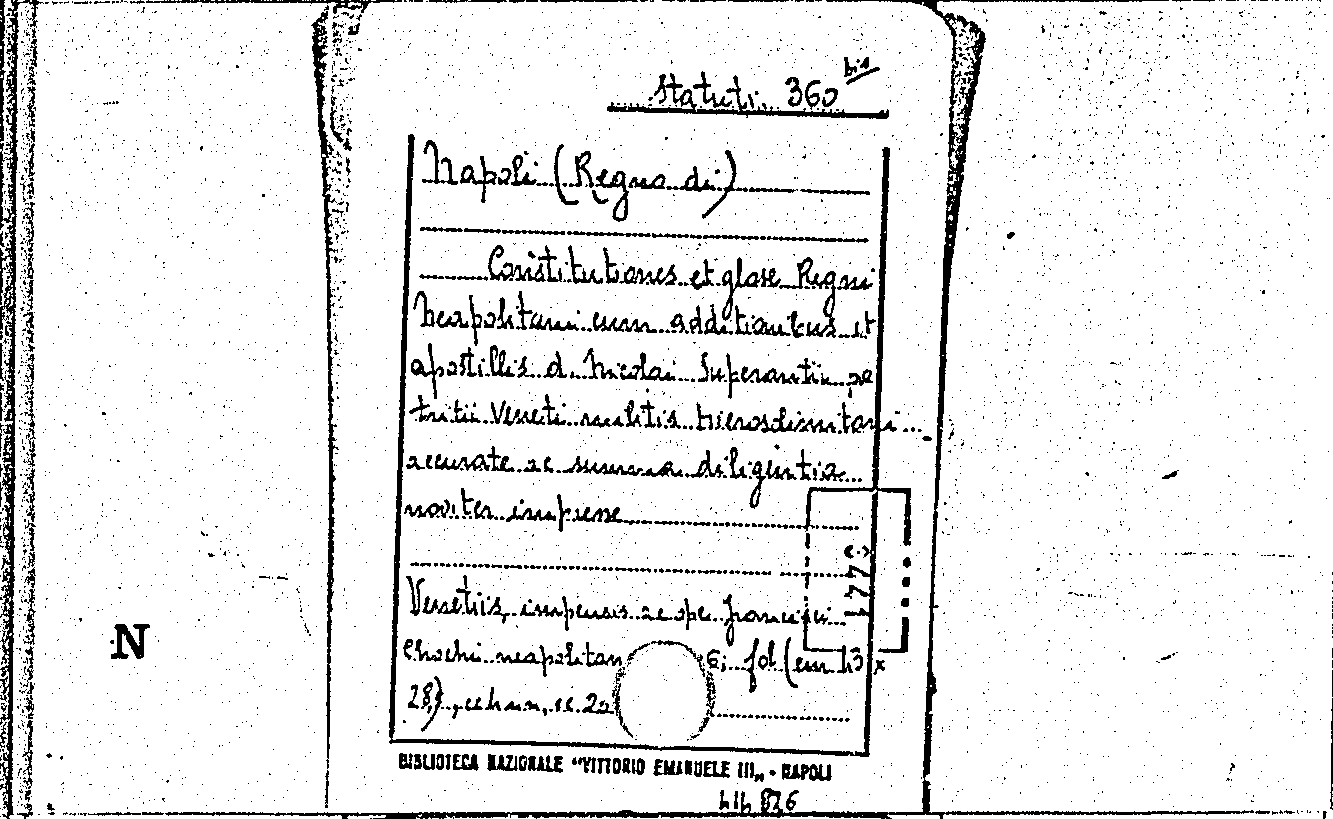 Statuti. 360 bis
Napoli (Regno di)
Constitutiones et glose Regni
Neapolitani cum additionibus et
apostillis d. Nicolai Superantii pa
tritii Veneti militis hierosolimitani
accurate ac summa diligentia
noviter impresse
Venetiis, impensis ac ope francisci
neapolitan 6; fol (cm 43 x
28),
1773
N
BIBLIOTECA NAZIONALE "VITTORIO EMANUELE III„ - NAPOLI